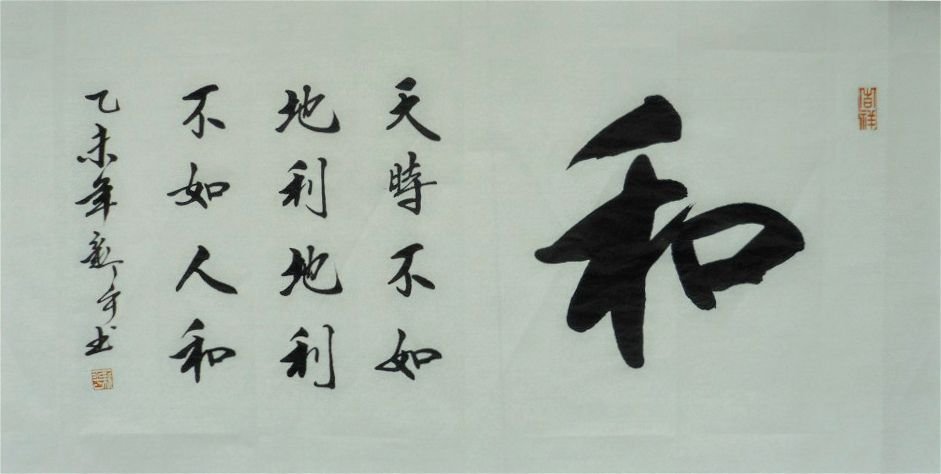 吉祥
和
天時不如
地利地利
不如人和
乙未年新宇书